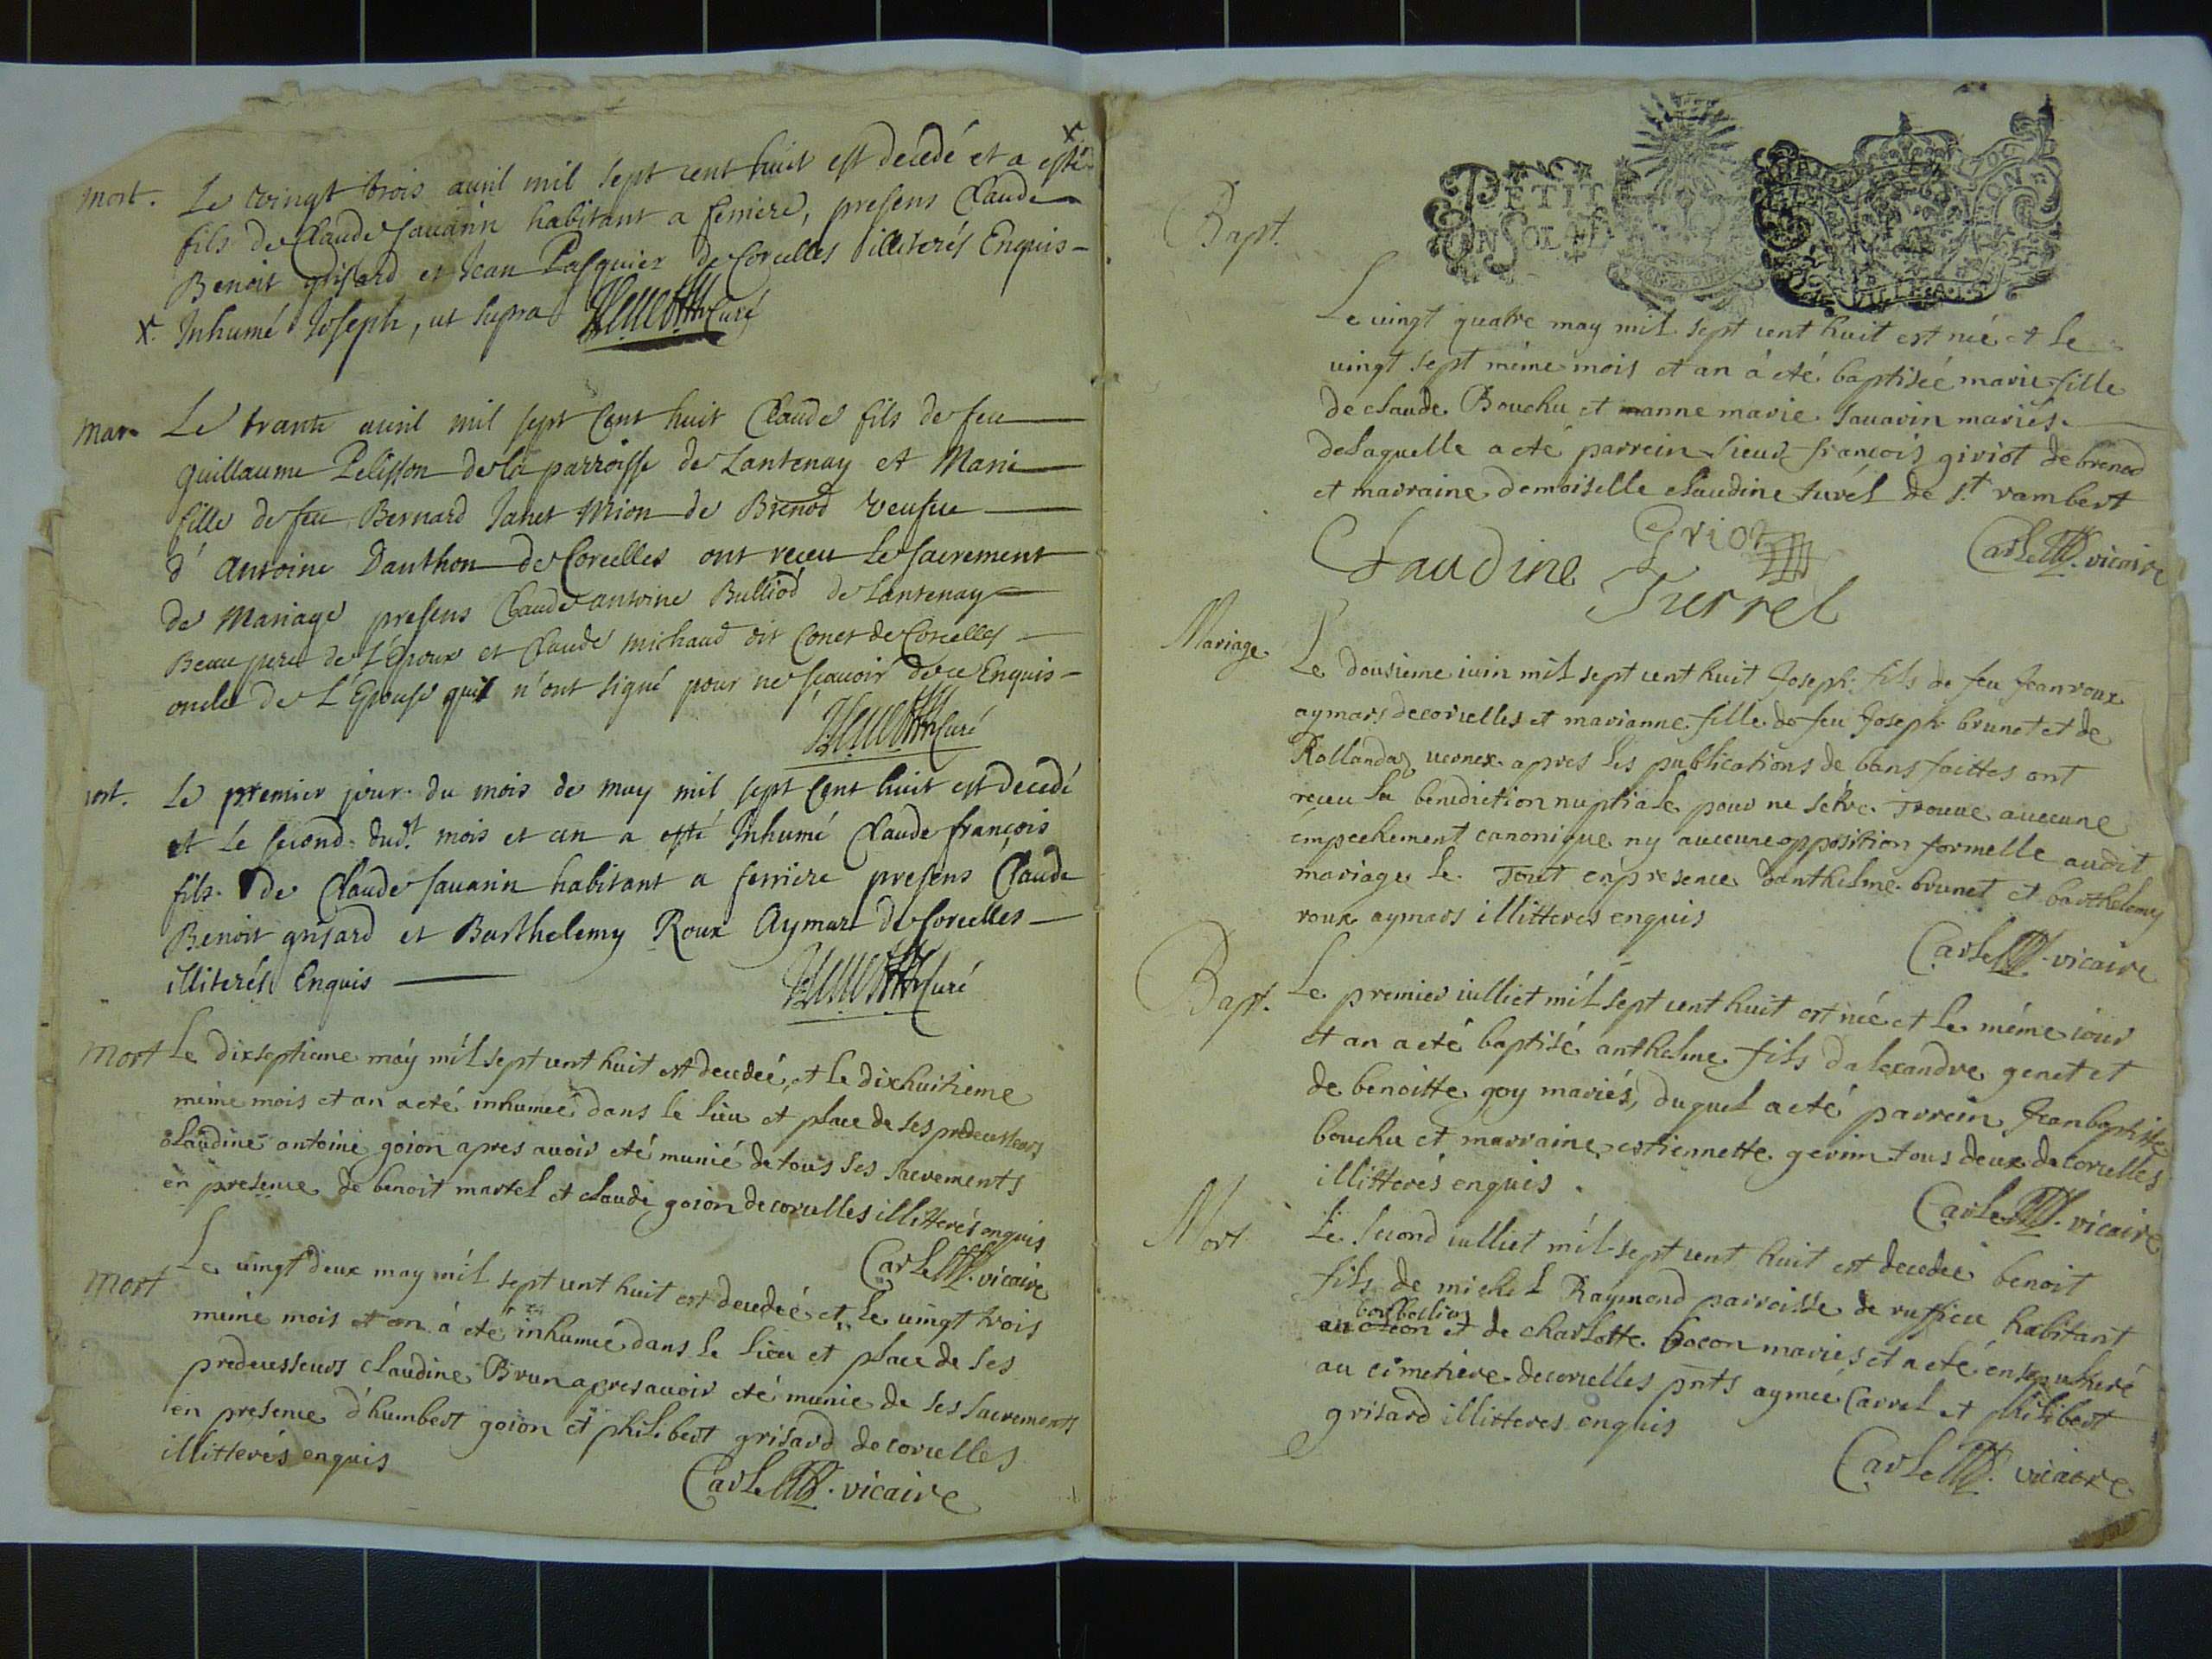 mort. Le vingt trois auril mil sept cent huit est decedé et a esté x
fils de Claude sauarin habitant a ferriere, presens Claude
Benoit grisard et Jean Pasquier de Corcelles illiterés Enquis
x. Inhumé Joseph, ut supra Curé
mar. Le trante auril mil sept Cent huit Claude fils de feu
guillaume Pelisson de la parroisse de Lantenay et Marie
fille de feu Bernard Janet Mion de Brenod veufue
d'Antoine Danthon de Corcelles ont receu le sacrement
de Mariage presens Claude antoine Bulliod de Lantenay
Beau pere de L'époux et Claude michaud dit Conet de Corcelles
oncle de L'Epouse qui n'ont signé pour ne sçauoir de ce Enquis
Curé
mort. Le premier jour du mois de may mil sept Cent huit est decedé
et le second dud.t mois et an a esté Inhumé Claude françois
fils de Claude sauarin habitant a ferriere presens Claude
Benoit grisard et Barthelemy Roux Aymar de Corcelles
illiterés Enquis
Curé
Mort Le dixseptieme máy mil sept cent huit est decedeé, et le dixhuitieme
méme mois et an a eté inhumeé dans le lieu et place de ses predecesseurs
claudine antoine goion apres auoir eté munié de tous ses sacrements
en presence de benoit martel et claude goion de corcelles illitterés enquis
Carle vicaire
Mort Le vingt deux may mil sept cent huit est decedeé et le vingt trois
méme mois et an à eté inhumeé dans le lieu et place de ses
predecesseurs claudine Brun apres auoir eté munie de ses sacrements
en presence d'humbert goion et philibert grisard de corcelles
illitterés enquis
Carle vicaire
PETIT
ON SOL
Bapt.
Le vingt quatre may mil sept cent huit est neé et le
vingt sept méme mois et an à eté baptiseé marie fille
de claude Bouchu et anne marie sauarin mariés
de laquelle a eté parrein sieur françois giriot de brenod
et marraine demoiselle claudine turel de s.t rambert
Griot
Claudine Turrel
Carle vicaire
Mariage Le dousieme iuin mil sept cent huit Joseph fils de feu Jean roux
aymars de corcelles et marianne fille de feu Joseph brunet et de
Rollanda apres les publications de bans faittes ont
receu la benediction nuptiale pour ne sétre trouue aucune
émpechement canonique ny aucune opposition formelle audit
mariage le Tout én presence danthelme brunet et barthelemy
roux aymars illitteres enquis
Carle vicaire
Bapt. Le premier iulliet mil sept cent huit est neé et le méme iour
et an a eté baptisé anthelme fils dalexandre genet et
de benoitte goy mariés, duquel a eté parrein Jean baptiste
bouchu et marraine estiennette tous deux de corcelles
illitterés enquis.
Carle vicaire
Mort Le second iulliet mil sept cent huit est decedeé benoit
fils de michel Raymond parroisse de ruffieu habitant
et de charlotte bocon mariés et a eté énsepulturé
au cimetiere de corcelles pnts aymeé Carrel et philibert
grisard illitteres enquis
Carle vicaire